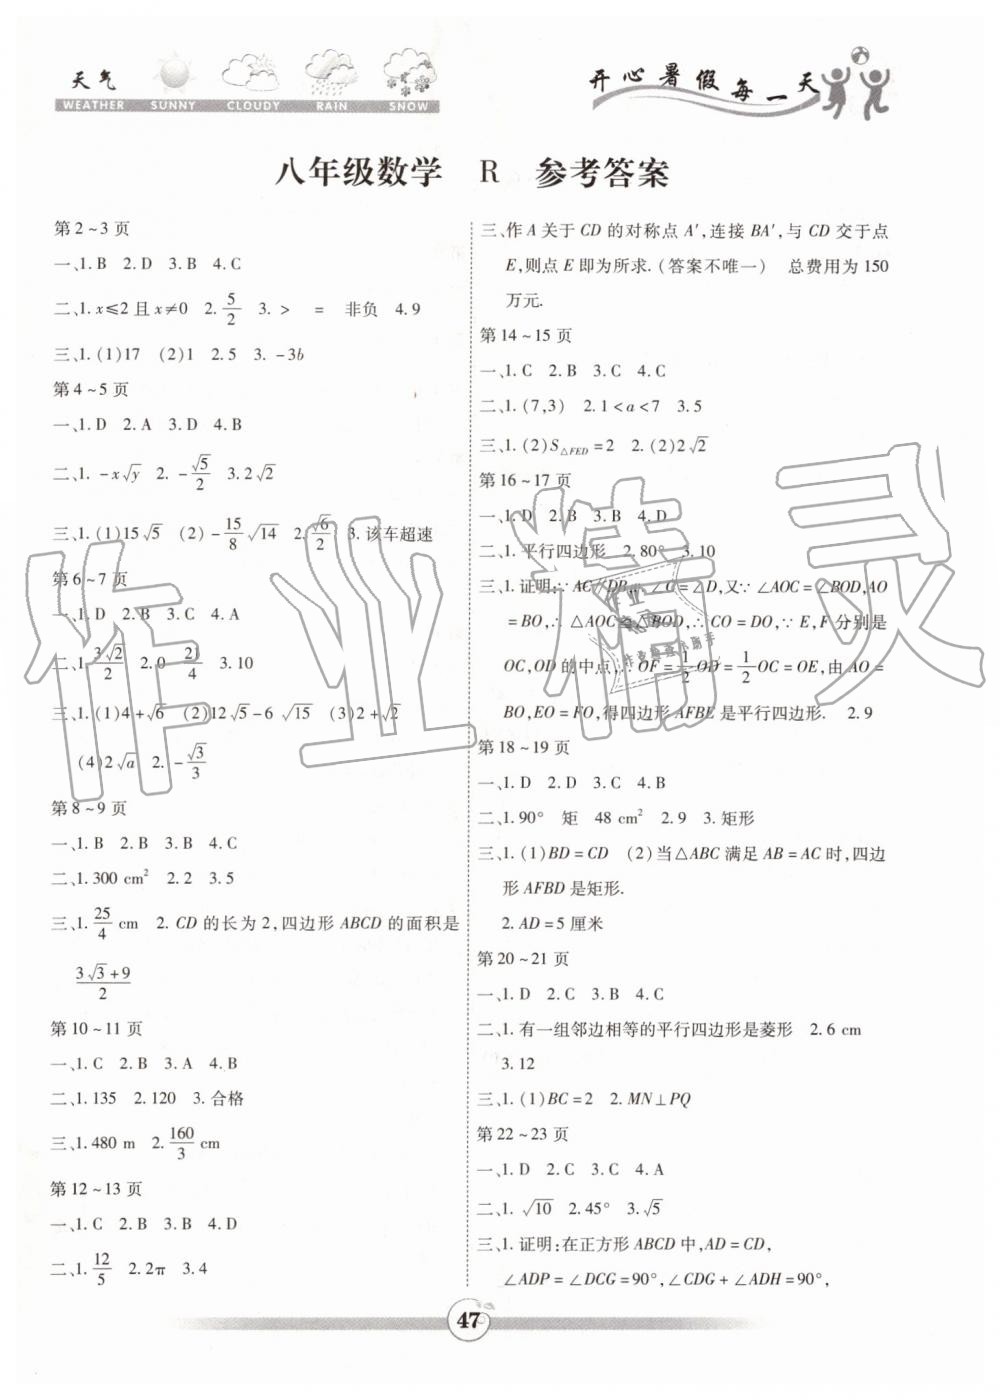 天气
WEATHER SUNNY CLOUDY RAIN SNOW
开心暑假每一天
八年级数学 R 参考答案
第2~3页
一、1. B 2. D 3. B 4. C
二、1. x≤2且x≠0 2. 5/2 3. > = 非负 4. 9
三、1. (1)17 (2)1 2. 5 3. -3b
第4~5页
一、1. D 2. A 3. D 4. B
二、1. -x√y 2. -√5/2 3. 2√2
三、1. (1)15√5 (2)-15/8 √14 2. √6/2 3. 该车超速
第6~7页
一、1. D 2. B 3. C 4. A
二、1. 3√2/2 2. 0 21/4 3. 10
三、1. (1)4+√6 (2)12√5-6√15 (3)2+√2
(4)2√a 2. -√3/3
第8~9页
一、1. B 2. B 3. B 4. C
二、1. 300 cm² 2. 2 3. 5
三、1. 25/4 cm 2. CD的长为2,四边形ABCD的面积是
(3√3+9)/2
第10~11页
一、1. C 2. B 3. A 4. B
二、1. 135 2. 120 3. 合格
三、1. 480 m 2. 160/3 cm
第12~13页
一、1. C 2. B 3. B 4. D
二、1. 12/5 2. 2π 3. 4
三、作A关于CD的对称点A′,连接BA′,与CD交于点
E,则点E即为所求.(答案不唯一) 总费用为150
万元.
第14~15页
一、1. C 2. B 3. C 4. C
二、1. (7,3) 2. 1<a<7 3. 5
三、1. (2)S△FED=2 2. (2)2√2
第16~17页
一、1. D 2. B 3. B 4. D
二、1. 平行四边形 2. 80° 3. 10
三、1. 证明:∵AC∥DB,∴∠C=∠D,又∵∠AOC=∠BOD,AO
=BO,∴△AOC≌△BOD,∴CO=DO,∵E,F分别是
OC,OD的中点,∴OF=1/2 OD=1/2 OC=OE,由AO=
BO,EO=FO,得四边形AFBE是平行四边形. 2. 9
第18~19页
一、1. D 2. D 3. D 4. B
二、1. 90° 矩 48 cm² 2. 9 3. 矩形
三、1. (1)BD=CD (2)当△ABC满足AB=AC时,四边
形AFBD是矩形.
2. AD=5厘米
第20~21页
一、1. D 2. C 3. D 4. C
二、1. 有一组邻边相等的平行四边形是菱形 2. 6 cm
3. 12
三、1. (1)BC=2 2. MN⊥PQ
第22~23页
一、1. D 2. C 3. C 4. A
二、1. √10 2. 45° 3. √5
三、1. 证明:在正方形ABCD中,AD=CD,
∠ADP=∠DCG=90°,∠CDG+∠ADH=90°,
47
作业精灵